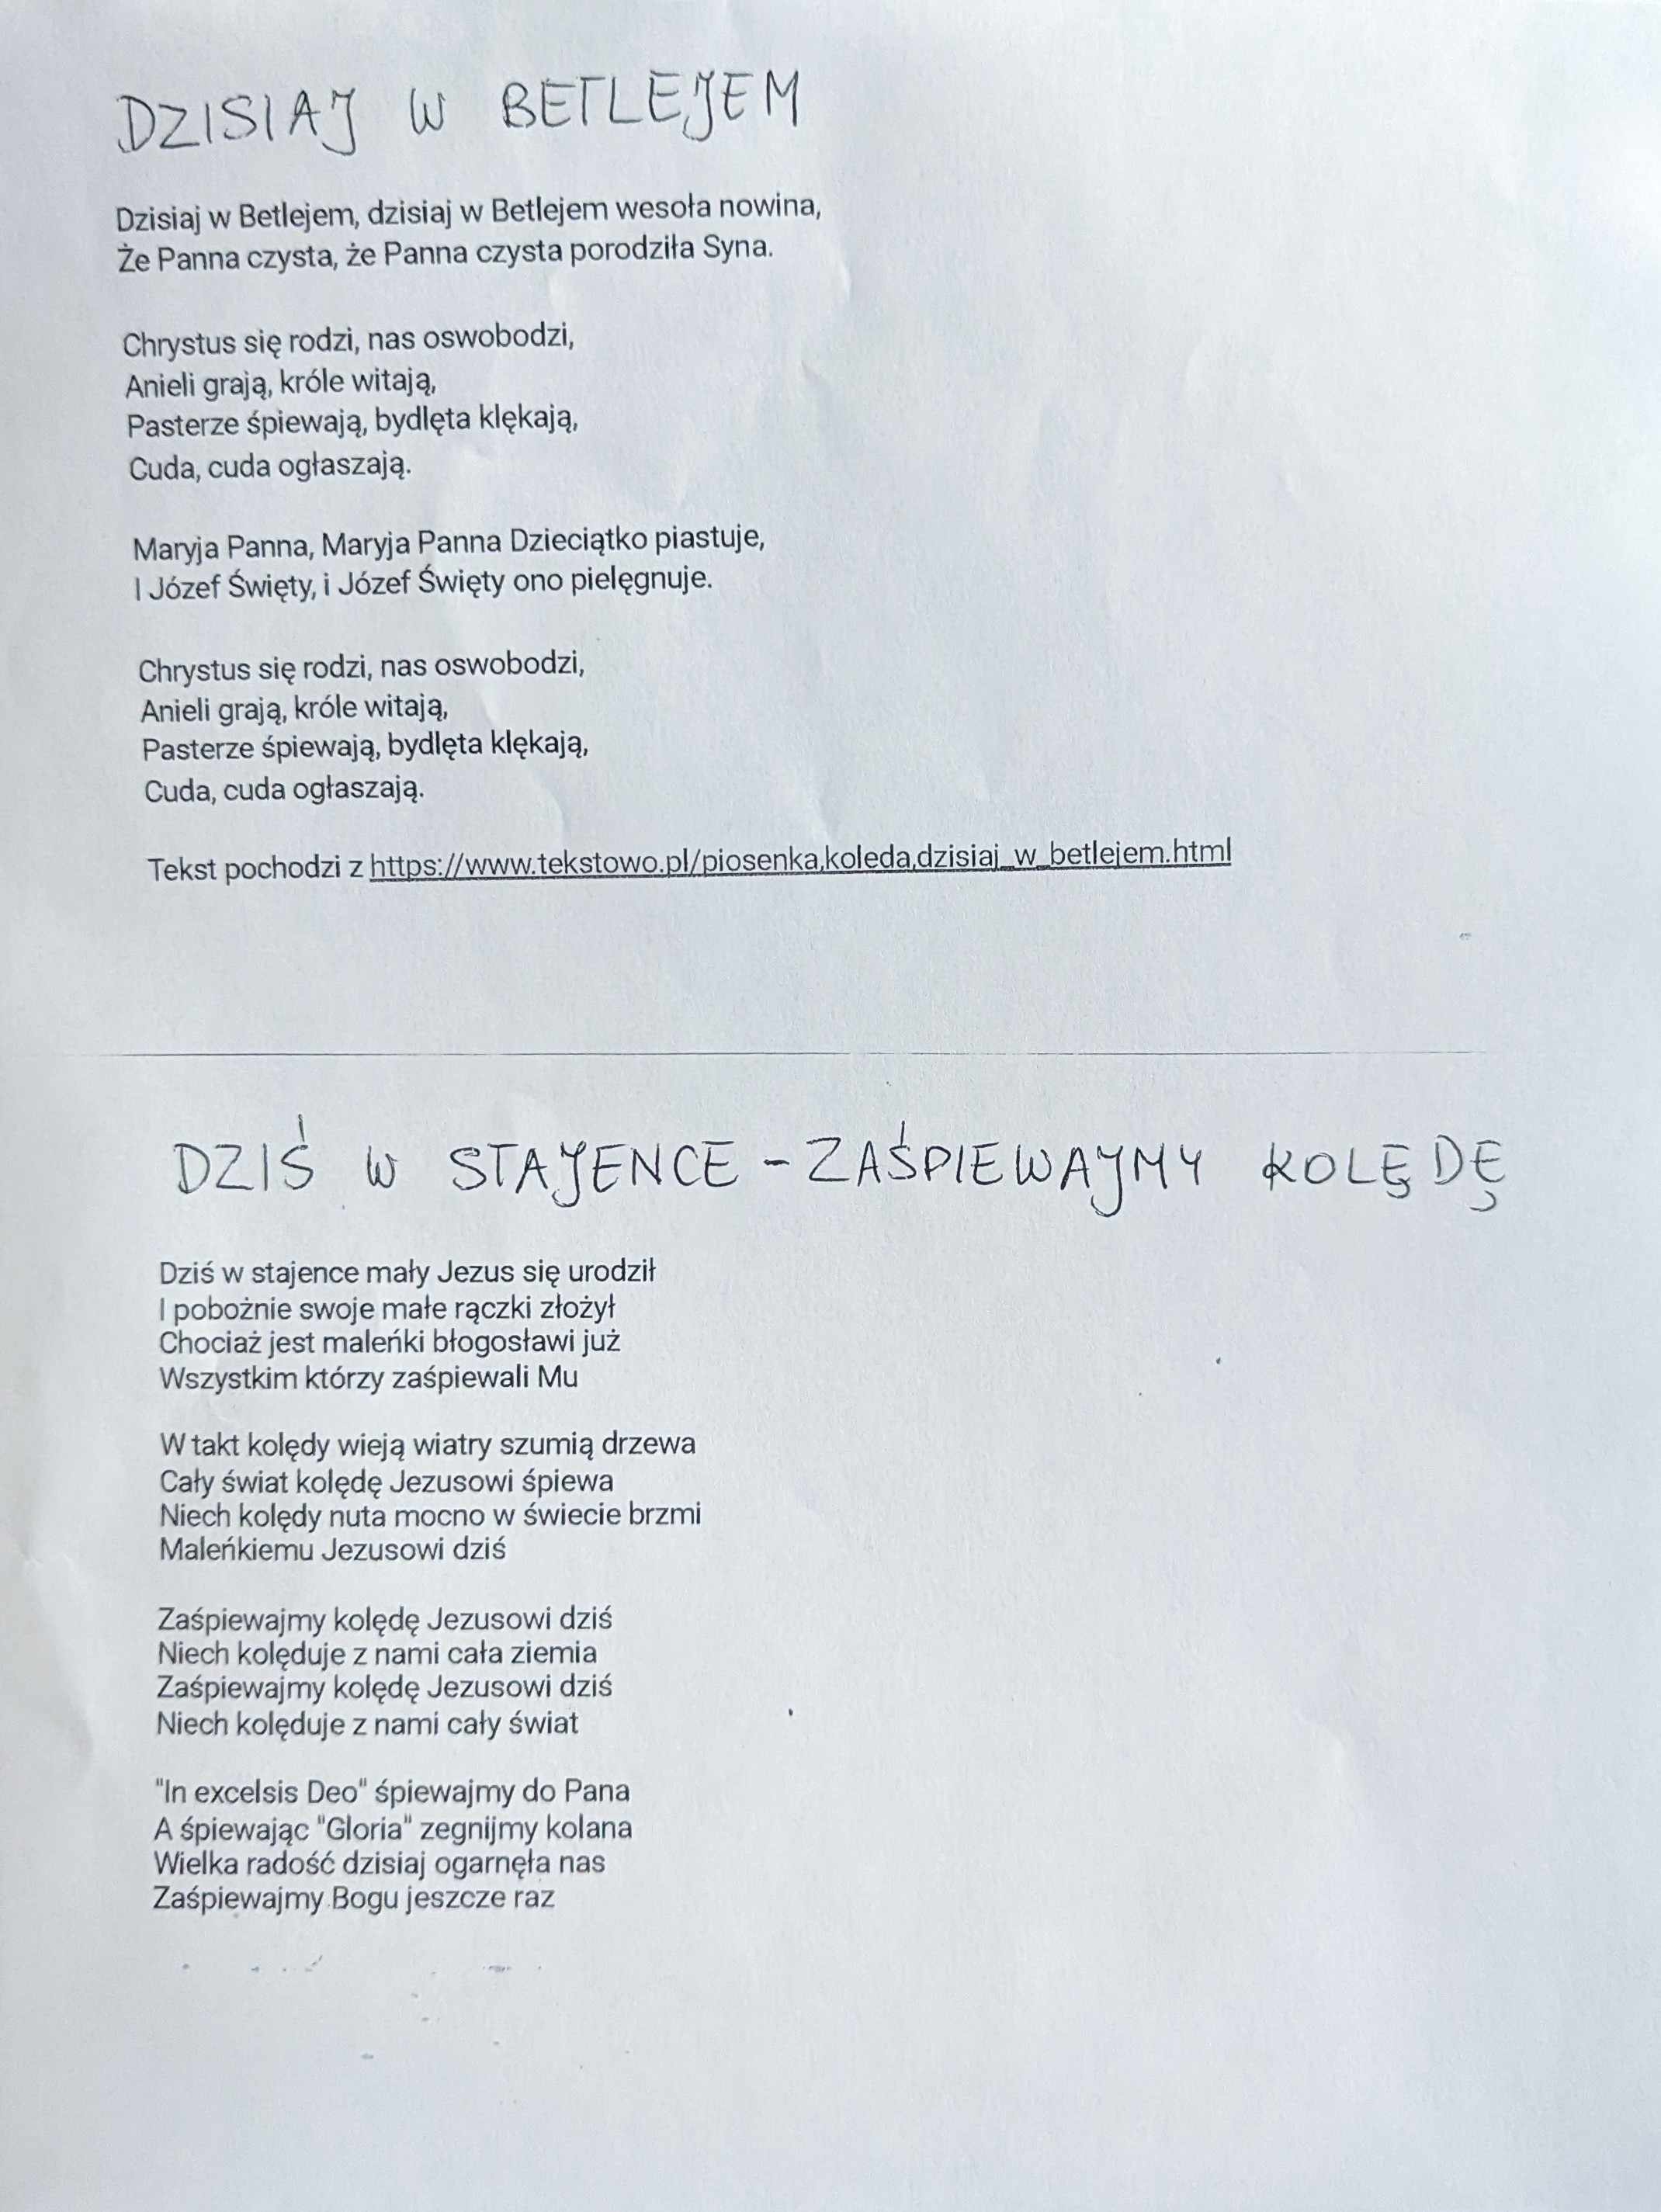 DZISIAJ W BETLEJEM
Dzisiaj w Betlejem, dzisiaj w Betlejem wesoła nowina,
Że Panna czysta, że Panna czysta porodziła Syna.
Chrystus się rodzi, nas oswobodzi,
Anieli grają, króle witają,
Pasterze śpiewają, bydlęta klękają,
Cuda, cuda ogłaszają.
Maryja Panna, Maryja Panna Dzieciątko piastuje,
I Józef Święty, i Józef Święty ono pielęgnuje.
Chrystus się rodzi, nas oswobodzi,
Anieli grają, króle witają,
Pasterze śpiewają, bydlęta klękają,
Cuda, cuda ogłaszają.
Tekst pochodzi z https://www.tekstowo.pl/piosenka,koleda,dzisiaj_w_betlejem.html
DZIŚ W STAJENCE - ZAŚPIEWAJMY KOLĘDĘ
Dziś w stajence mały Jezus się urodził
I pobożnie swoje małe rączki złożył
Chociaż jest maleńki błogosławi już
Wszystkim którzy zaśpiewali Mu
W takt kolędy wieją wiatry szumią drzewa
Cały świat kolędę Jezusowi śpiewa
Niech kolędy nuta mocno w świecie brzmi
Maleńkiemu Jezusowi dziś
Zaśpiewajmy kolędę Jezusowi dziś
Niech kolęduje z nami cała ziemia
Zaśpiewajmy kolędę Jezusowi dziś
Niech kolęduje z nami cały świat
"In excelsis Deo" śpiewajmy do Pana
A śpiewając "Gloria" zegnijmy kolana
Wielka radość dzisiaj ogarnęła nas
Zaśpiewajmy Bogu jeszcze raz